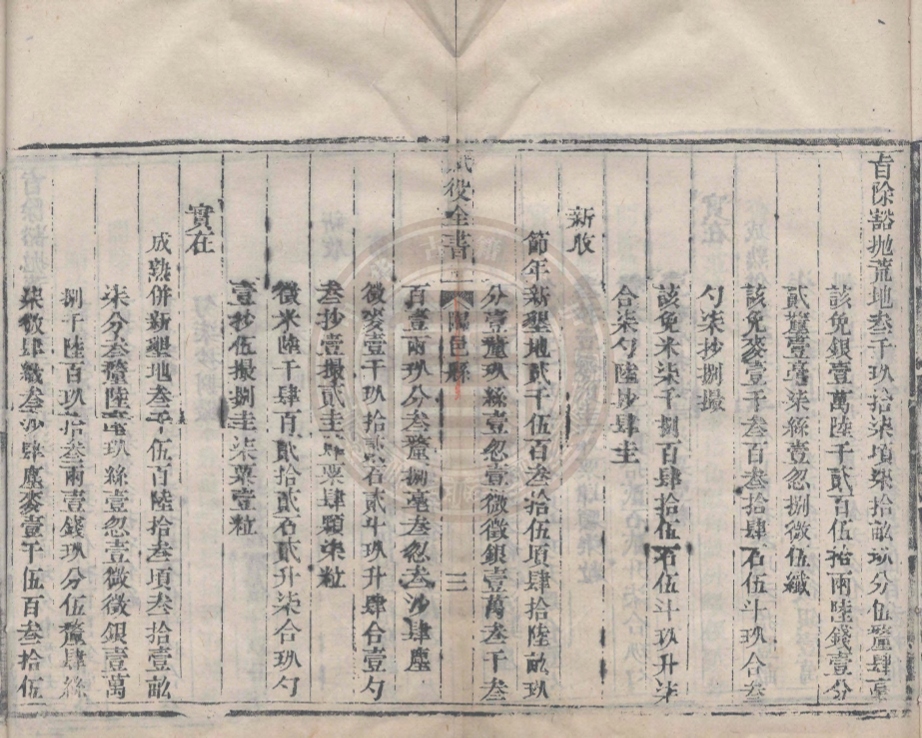 旨除豁拋荒地叁千玖拾柒頃柒拾畝玖分伍釐肆毫
該免銀壹萬陸千貳百伍拾兩陸錢壹分
貳釐壹毫柒絲壹忽捌微伍纖
該免麥壹千叁百叁拾肆石伍斗玖合叁
勺柒抄捌撮
該免米柒千捌百肆拾伍石伍斗玖升柒
合柒勺陸抄肆圭
新收
節年新墾地貳千伍百叁拾伍頃肆拾陸畝玖
分壹釐玖絲壹忽壹微徵銀壹萬叁千叁
賦役全書
邑縣
三
百壹兩玖分叁釐捌毫叁忽叁沙肆塵
徵麥壹千玖拾貳石貳斗玖升肆合壹勺
叁抄壹撮貳圭肆粟肆顆柒粒
徵米陸千肆百貳拾貳石貳升柒合玖勺
壹抄伍撮捌圭柒粟壹粒
實在
成熟併新墾地叁千伍百陸拾叁頃叁拾壹畝
柒分叁釐陸毫玖絲壹忽壹微徵銀壹萬
捌千陸百玖拾叁兩壹錢玖分伍釐肆絲
柒微肆纖叁沙肆塵麥壹千伍百叁拾伍